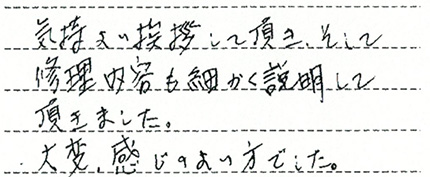 気持よい挨拶して頂き、そして
修理内容も細かく説明して
頂きました。
大変、感じのよい方でした。